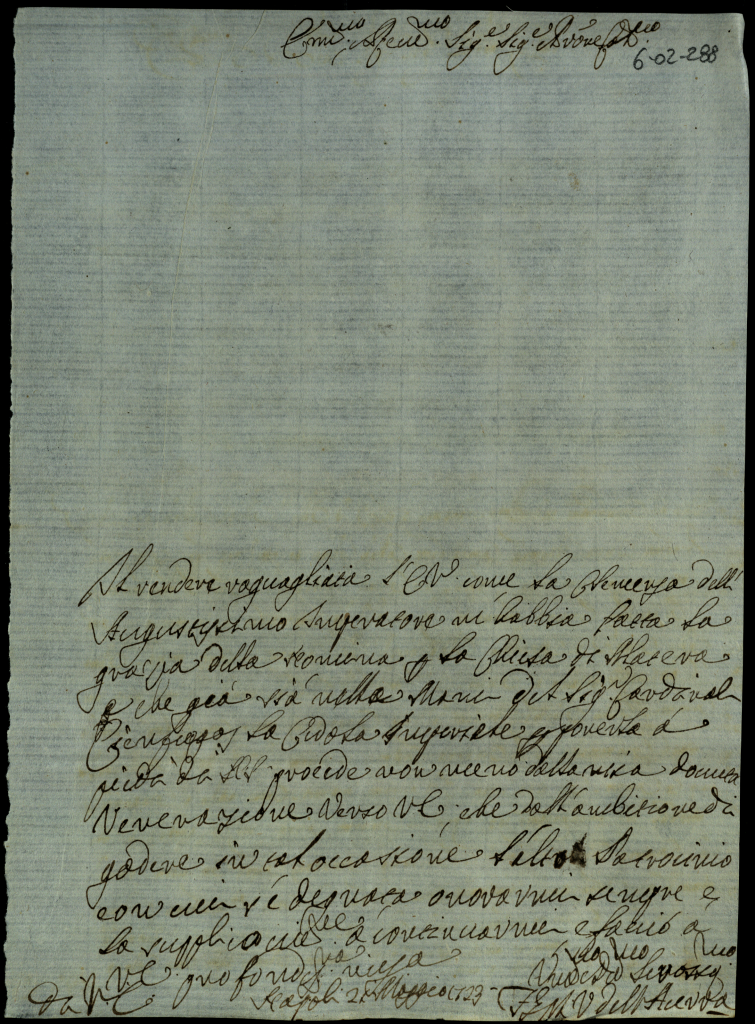 Em.mo Rev.mo Sig.e Sig.e
6-02-288
Il rendere raguagliata l'EV come la Clemenza dell'
Augustissimo Imperatore m'habbia fatta la
grazia della nomina p la Chiesa di Matera
e che già sia nelle Mani del Sig.r Cardinal
Cienfuegos la Cedola Imperiale p poterla
da procede non meno dalla mia dovuta
Venerazione Verso VE, che dall'ambitione di
godere in tal occasione l'alto Patrocinio
con cui s'è degnata onorarmi sempre e
la supplico a continuarmi e facio a
VE profond.ma
Napoli Maggio 1723
da VE
V dell'Acerra